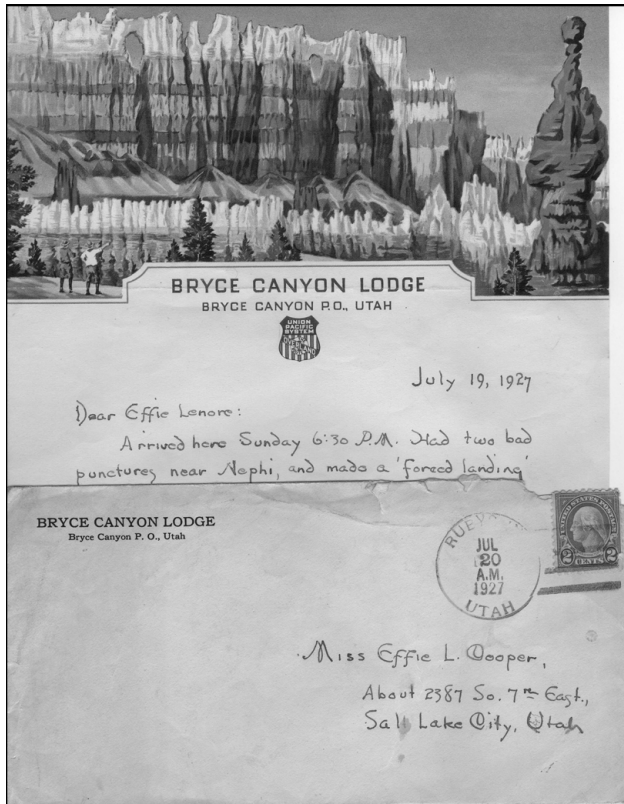 BRYCE CANYON LODGE
BRYCE CANYON P.O., UTAH
UNION
PACIFIC
SYSTEM
July 19, 1927
Dear Effie Lenore:
Arrived here Sunday 6:30 P.M. Had two bad
punctures near Nephi, and made a 'forced landing'
BRYCE CANYON LODGE
Bryce Canyon P. O., Utah
JUL
20
A.M.
1927
UTAH
UNITED STATES POSTAGE
2 CENTS 2
Miss Effie L. Cooper,
About 2387 So. 7th East.,
Salt Lake City, Utah